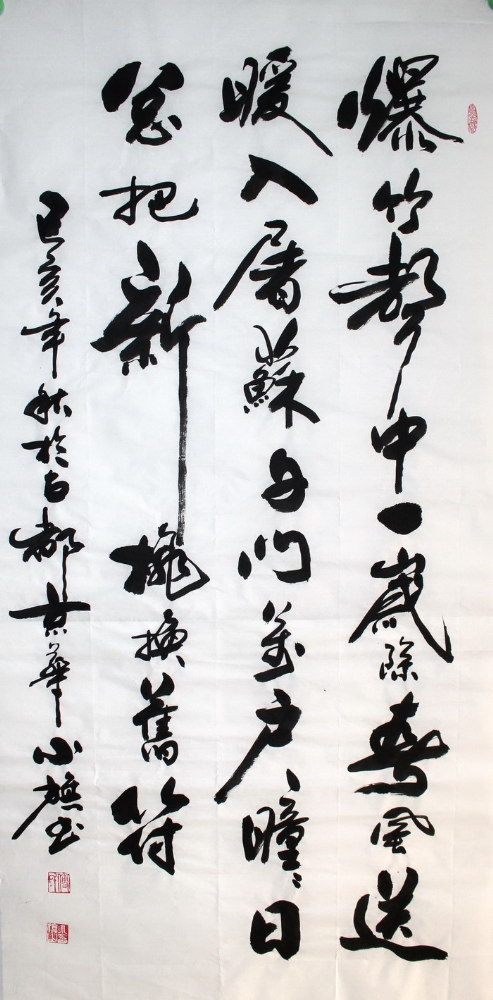 爆竹聲中一歲除春風送
暖入屠蘇門萬戶曈〻日
总把新桃換舊符
己亥年秋於古都京華小樵书